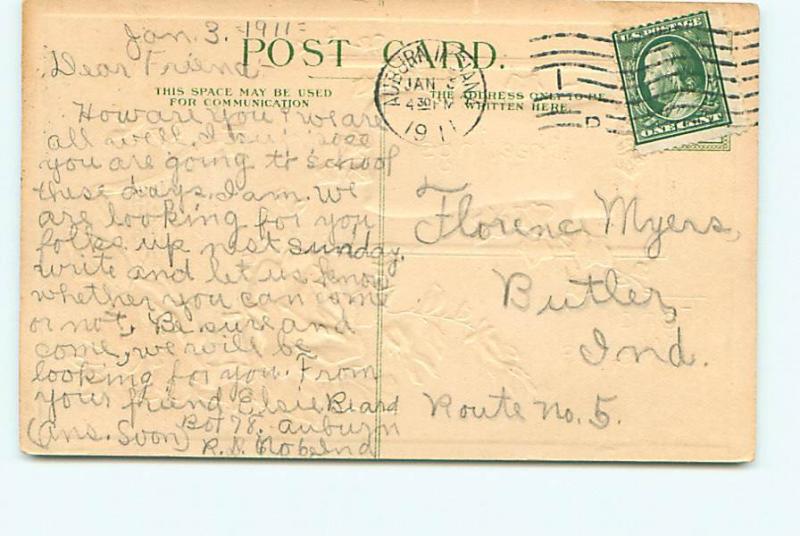 Jan. 3. 1911=
POST CARD.
Dear Friend
THIS SPACE MAY BE USED
FOR COMMUNICATION
THE ADDRESS ONLY TO BE
WRITTEN HERE.
How are you? we are
all well. I you are going to school
these days. I am. We
are looking for you
folks up next sunday.
write and let us know
whether you can come
or not, Be sure and
come, we will be
looking for you. From
your friend Elsie Beard
(Ans. Soon) Box 78. Auburn
R.D. No 6 Ind
AUBURN, INDIANA
JAN 3
4 30 PM
1911
D
U.S. POSTAGE
ONE CENT
Florence Myers,
Butler,
Ind.
Route No. 5.